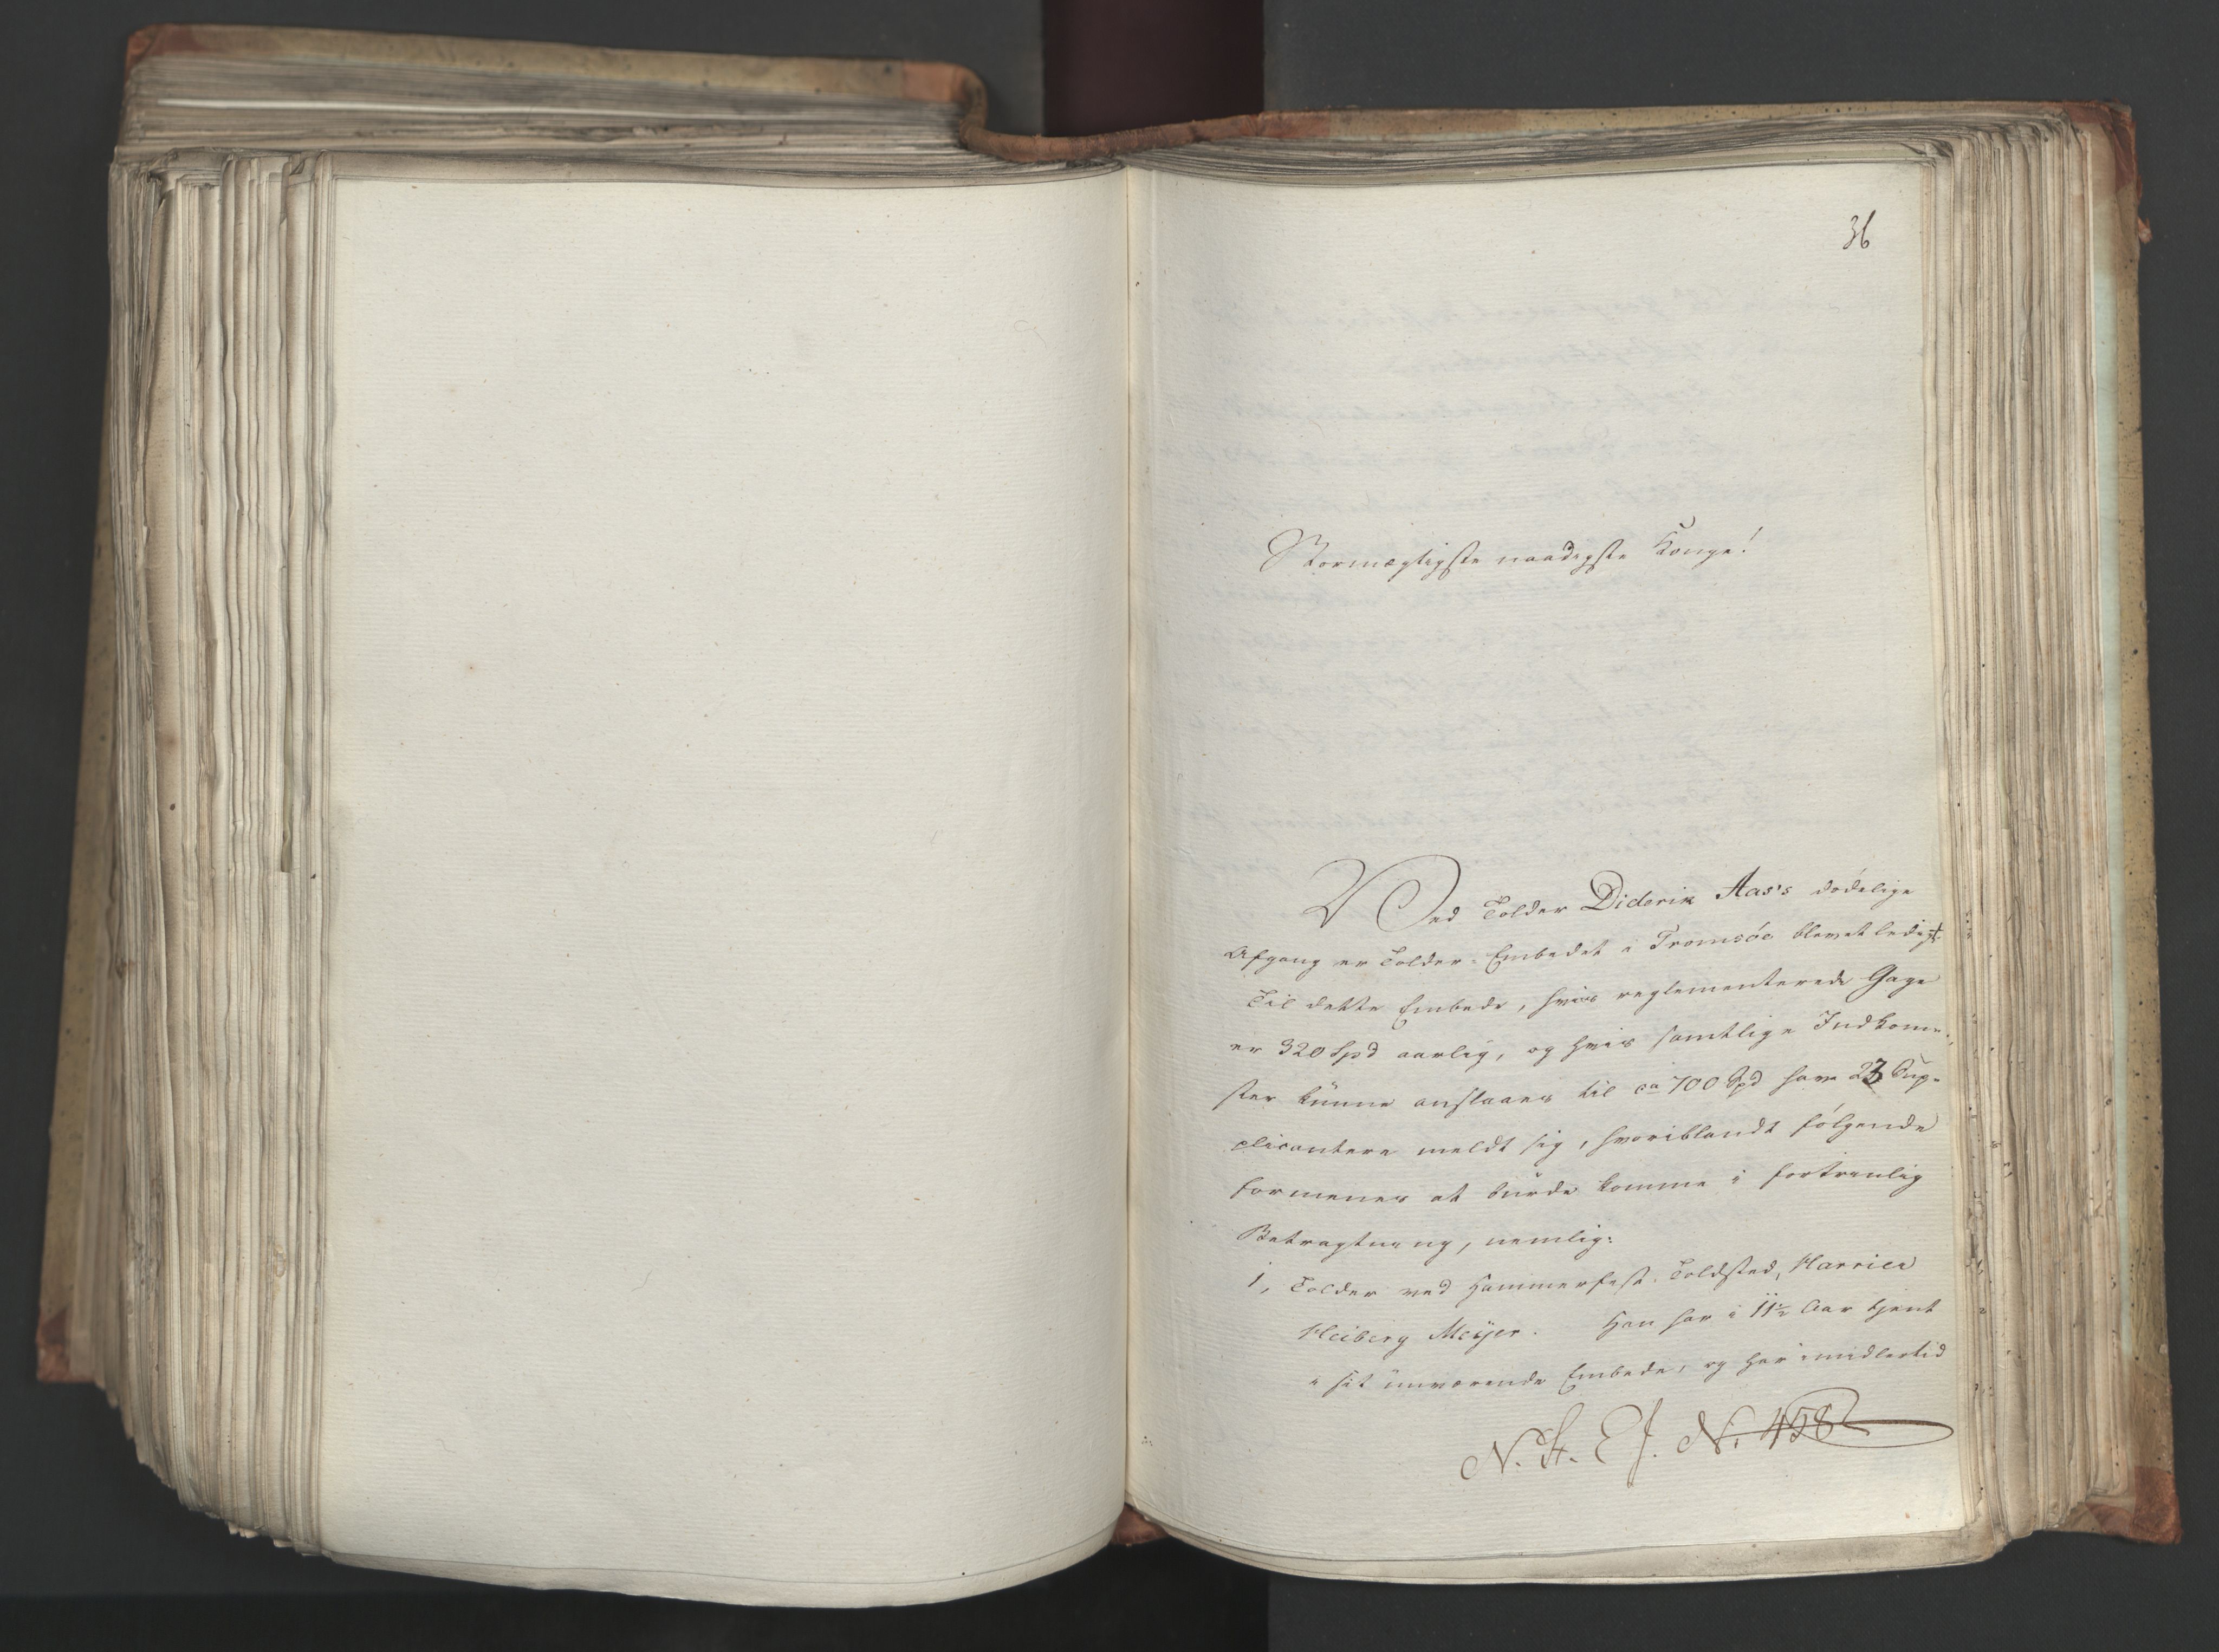 36
Stormægtigste naadigste Konge!
Ved Tolder Diderik Aas's dødelige
Afgang er Tolder-Embedet i Tromsöe blevet ledigt
Til dette Embede, hvis reglementerede Gage
er 320 Spd aarlig, og hvis samtlige Indkom-
ster kunne anslaaes til ca 700 Spd have 23 Sup-
plicantere meldt sig, hvoriblandt følgende
formenes at burde komme i fortrinlig
Betragtning, nemlig:
1, Tolder ved Hammerfest Toldsted,
Heiberg Meÿer. Han har i 11½ Aar tjent
i sit nuværende Embede, og har imidlertid
N. St. E J. No 458